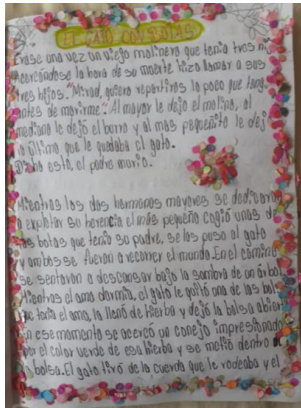 EL GATO CON BOTAS
Erase una vez un viejo molinero que tenía tres
Acercándose la hora de su muerte hizo llamar a sus
tres hijos. "Mirad, quiero repartiros lo poco que teng
antes de morirme". Al mayor le dejo el molino, al
mediano le dejó el burro y al más pequeñito le dejó
lo último que le quedaba el gato.
Dicho esto, el padre murio.
Mientras los dos hermanos mayores se dedicaron
a explotar su herencia el más pequeño cogió unas de
las botas que tenía su padre, se las puso al gato
y ambos se fueron a recorrer el mundo. En el camino
se sentaron a descansar bajo la sombra de un árbol
Mientras el amo dormía, el gato le quitó una de las bols
que tenía el amo, la llenó de hierba y dejó la bolsa abiert
En ese momento se acercó un conejo impresionado
por el color verde de esa hierba y se metió dentro d
bolsa. El gato tiró de la cuerda que le rodeaba y el